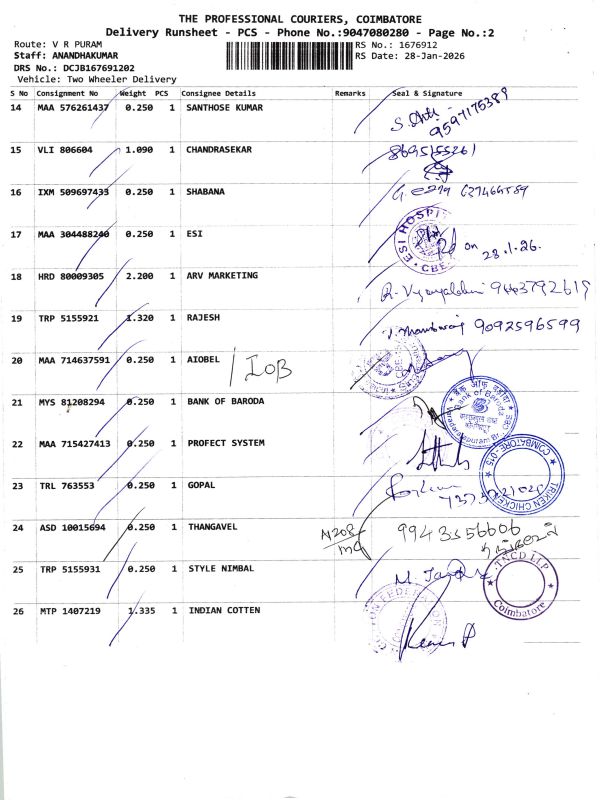 THE PROFESSIONAL COURIERS, COIMBATORE
Delivery Runsheet - PCS - Phone No.:9047080280 - Page No.:2
Route: V R PURAM
RS No.: 1676912
Staff: ANANDHAKUMAR
RS Date: 28-Jan-2026
DRS No.: DCJB167691202
Vehicle: Two Wheeler Delivery
S No Consignment No Weight PCS Consignee Details Remarks Seal & Signature
14 MAA 576261437 0.250 1 SANTHOSE KUMAR
9597175389
15 VLI 806604 1.090 1 CHANDRASEKAR
16 IXM 509697433 0.250 1 SHABANA
17 MAA 304488240 0.250 1 ESI
ESI HOSPIT
CBE
on 28.1.26.
18 HRD 80009305 2.200 1 ARV MARKETING
9443792619
19 TRP 5155921 1.320 1 RAJESH
9092596599
20 MAA 714637591 0.250 1 AIOBEL / IOB
21 MYS 81208294 0.250 1 BANK OF BARODA
बैंक ऑफ़ बड़ौदा
Bank of Baroda
22 MAA 715427413 0.250 1 PROFECT SYSTEM
23 TRL 763553 0.250 1 GOPAL
TRIKEN CHICKEN
COIMBATORE-015
24 ASD 10015694 0.250 1 THANGAVEL
9943556606
தங்கவேல்
25 TRP 5155931 0.250 1 STYLE NIMBAL
TNCD LLP
Coimbatore
26 MTP 1407219 1.335 1 INDIAN COTTEN